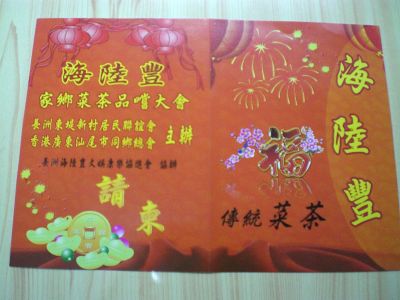 海陸豐
家鄉菜茶品嚐大會
長洲東堤新村居民聯誼會
香港廣東汕尾市同鄉總會
主辦
長洲海陸豐文娛康樂協進會 協辦
請柬
海陸豐
福
傳統菜茶